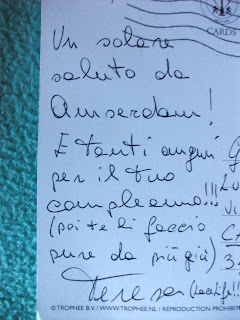 CARDS
Un solare
saluto da
Amserdam!
E tanti auguri
per il tuo
compleanno!!!
(poi te li faccio
pure da più giù)
Teresa
© TROPHEE B.V. / WWW.TROPHEE.NL / REPRODUCTION PROHIBIT